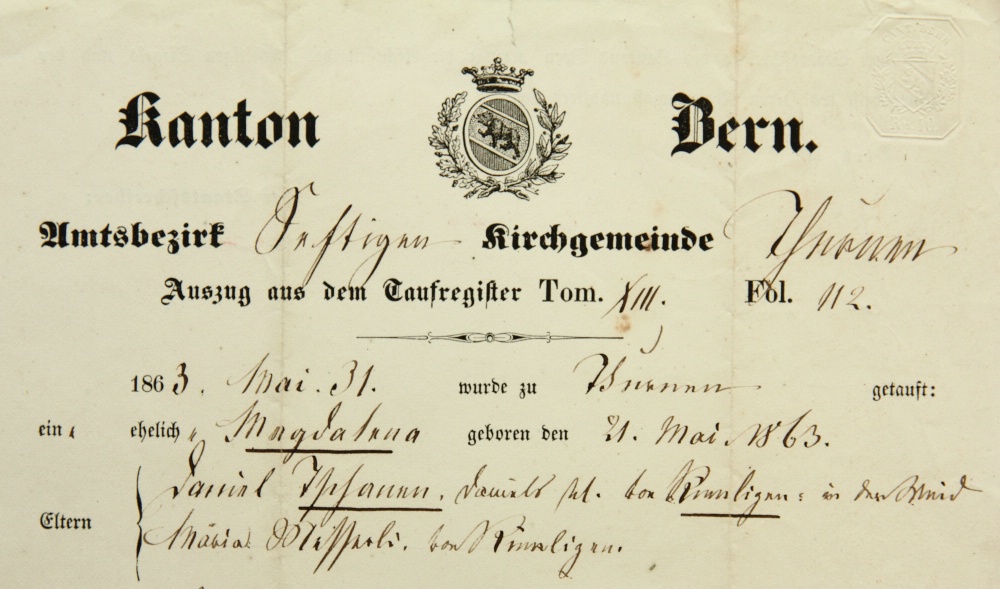 Kanton Bern.
Amtsbezirk Seftigen Kirchgemeinde Thurnen
Auszug aus dem Taufregister Tom. XIII. Fol. 112.
1863. Mai. 31. wurde zu Thurnen getauft:
ein ehelich Magdalena geboren den 21. Mai. 1863.
Eltern Daniel Tschanen, Daniels sel. von Rümligen: in der Weid
Maria Messerli. von Rümligen.